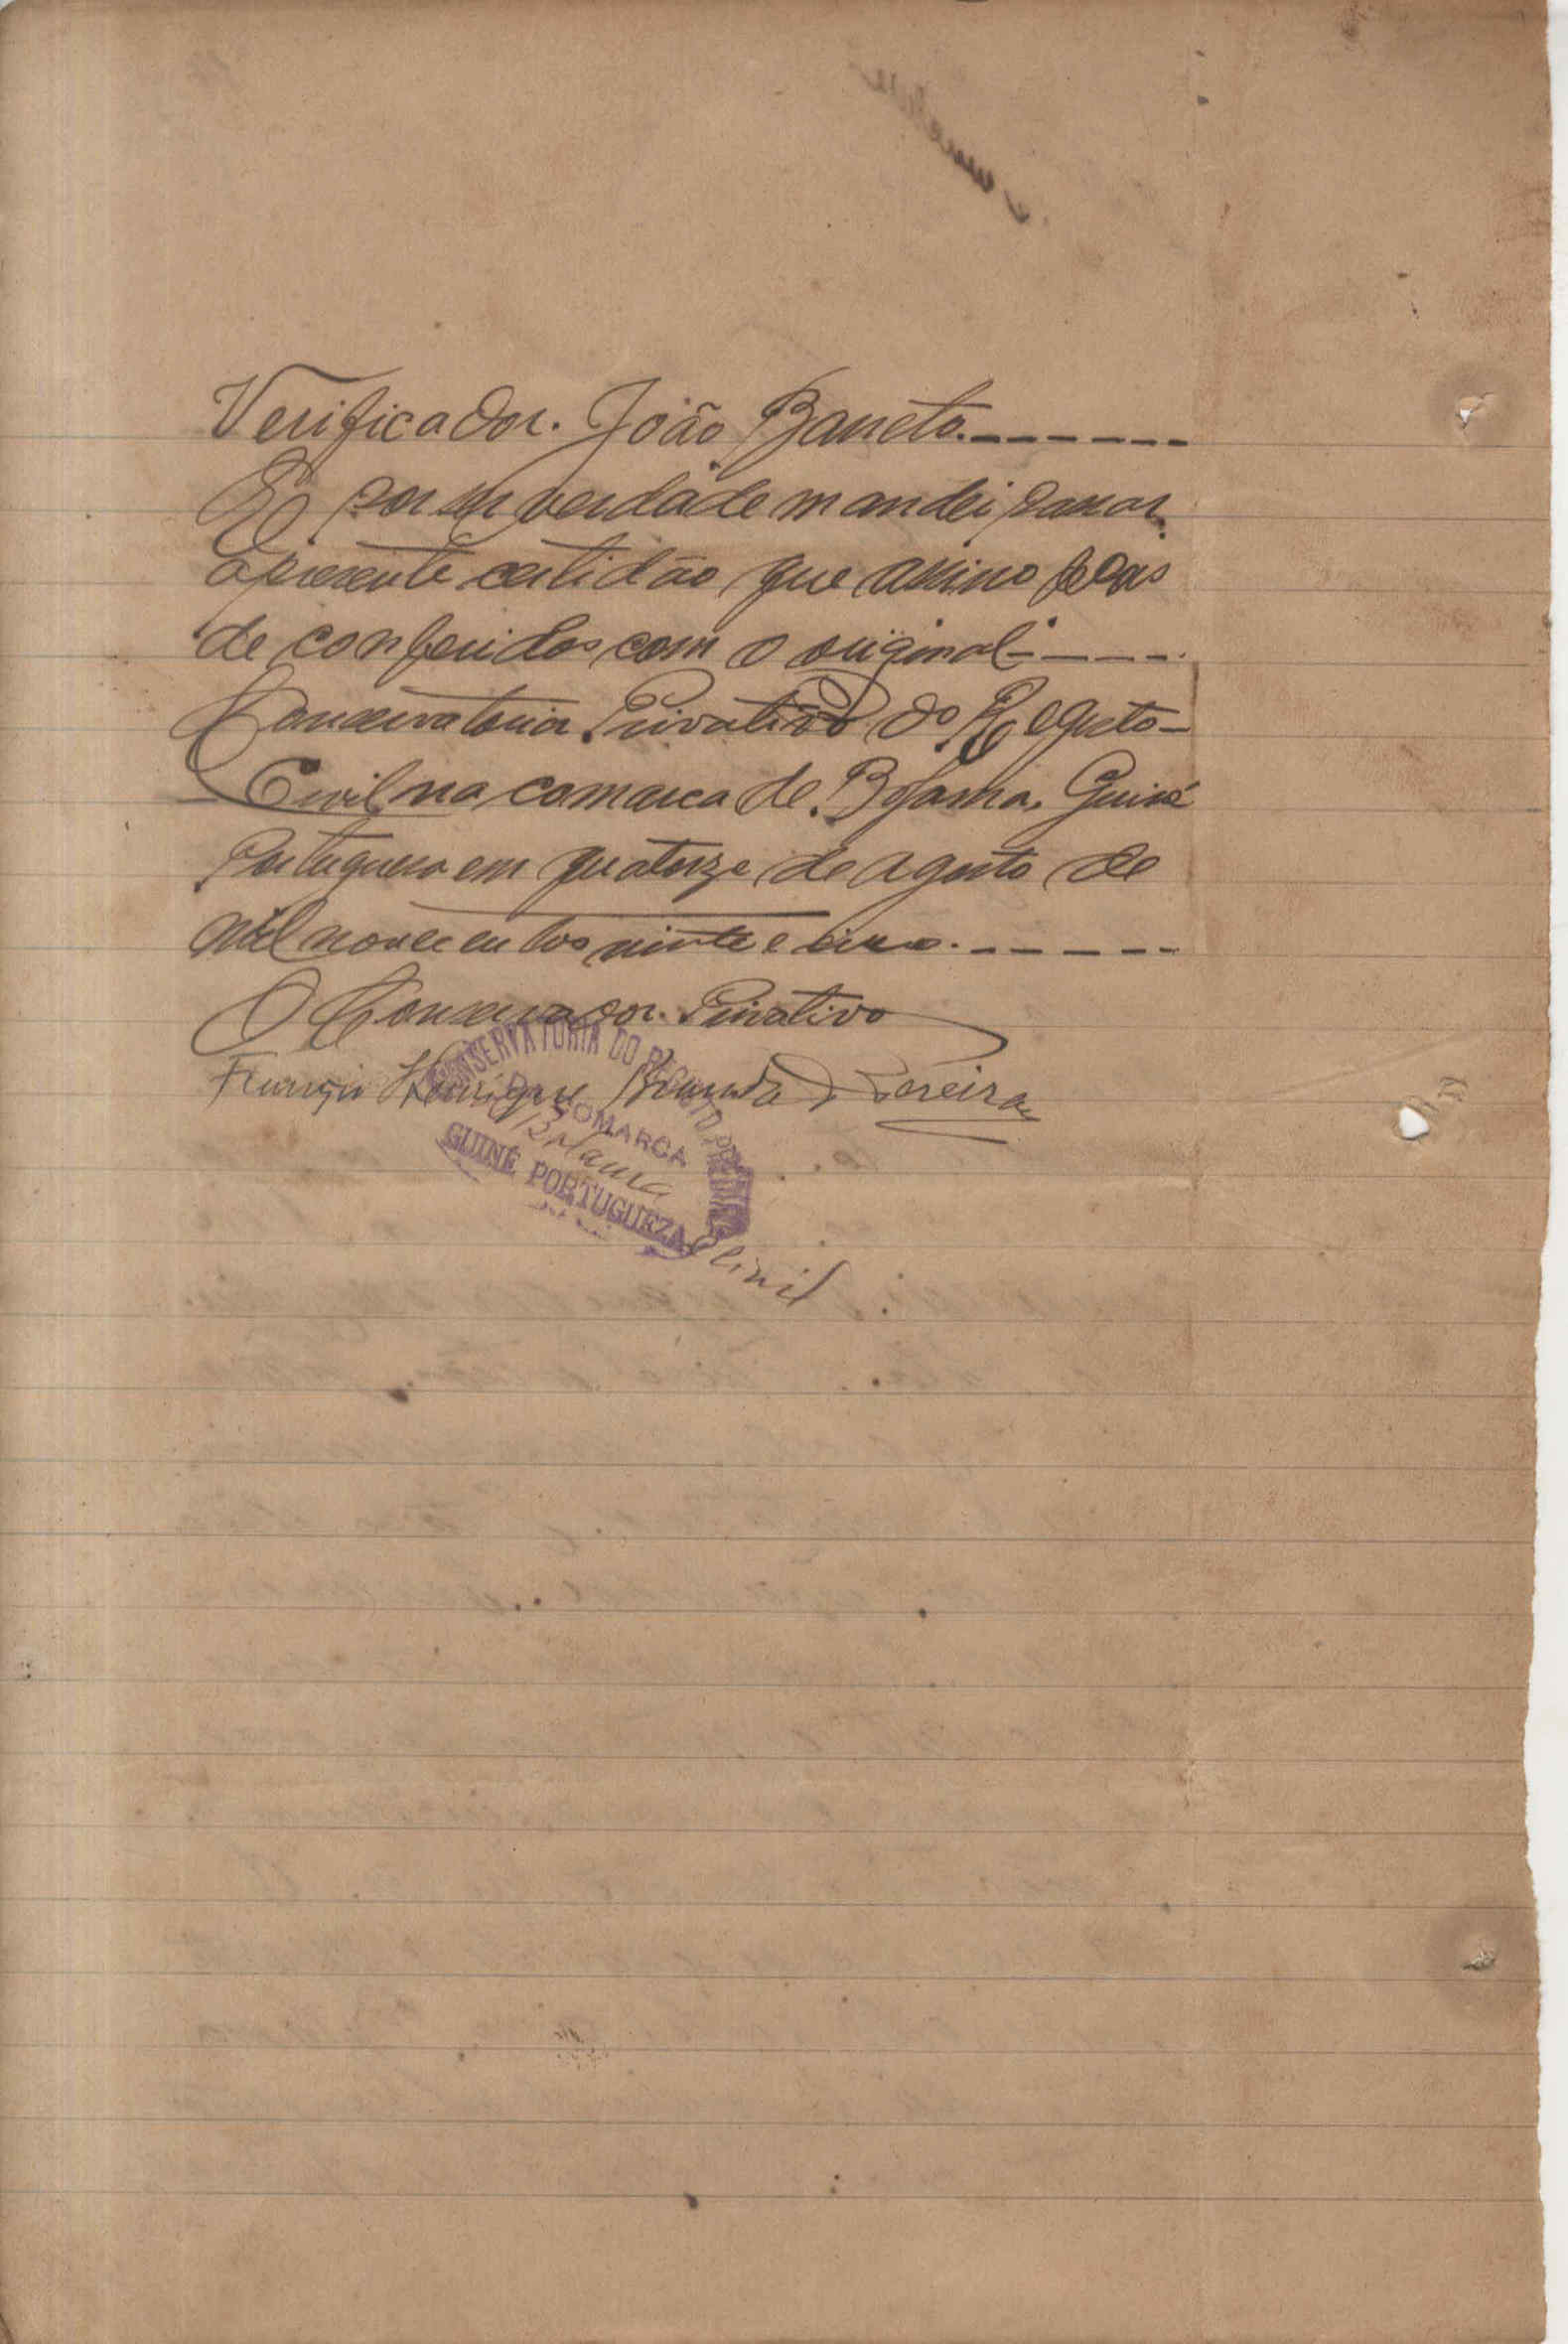 Verificador. João Barreto.------
E por ser verdade mandei passar
a presente certidão que assino depois
de conferidos com o original-----
Conservatoria Privativa do Registo-
Civil na comarca de Bolama. Guiné
Portuguesa em quatorze de agosto de
mil novecentos vinte e cinco.-----
O Conservador. Privativo
Henrique Pereira
CONSERVATORIA DO REGISTO
COMARCA
Bolama
GUINÉ PORTUGUEZA
Civil